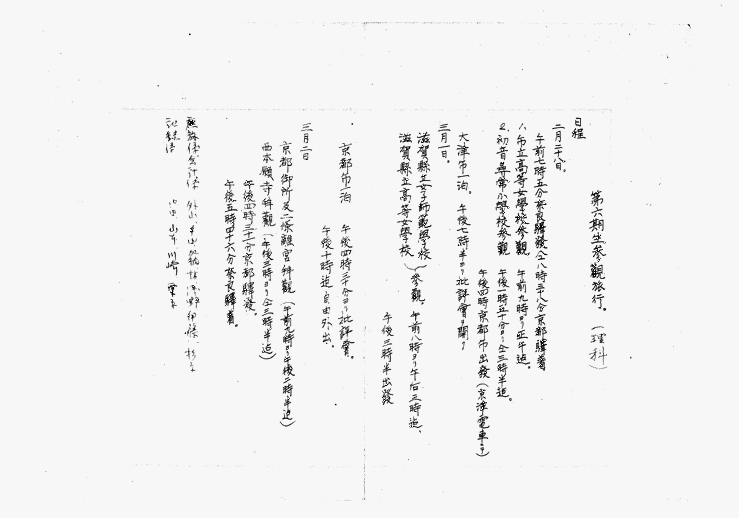 第六期生参觀旅行。（理科）
日程
二月二十八日。
午前七時五分奈良驛發仝八時五八分京都驛着
1、市立高等女學校参觀 午前九時ヨリ正午迄。
2、初音尋常小學校参觀 午後一時五十分ヨリ仝三時半迄。
午後四時京都市出發（京津電車ヨリ）
大津市一泊。 午後七時半ヨリ批評會ヲ開ク
三月一日。
滋賀縣立女子師範學校
滋賀縣立高等女學校
参觀。午前八時ヨリ午后三時迄、
午後三時半出發
京都市一泊 午後四時三十分ヨリ批評會。
午後十時迄自由外出。
三月二日
京都御所及二條離宮拜觀（午前九時ヨリ午後二時半迄）
西本願寺拜觀（午後三時ヨリ仝三時半迄）
午後四時三十分京都驛發。
午後五時四十六分奈良驛着。
会計係 外山、
記録係 山本 川崎